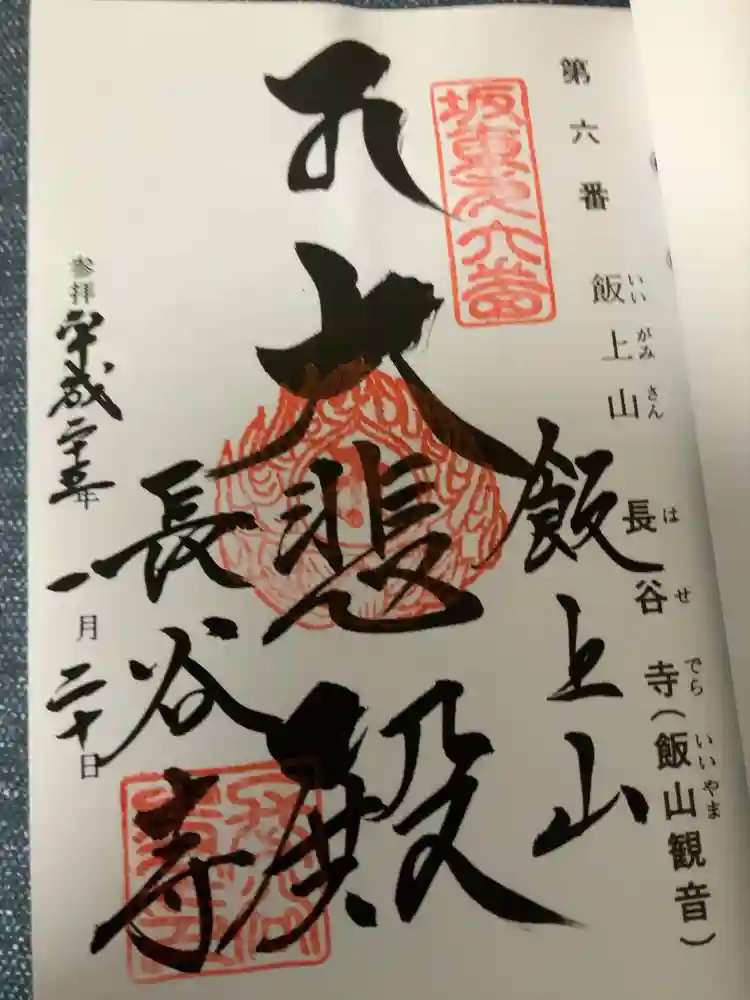 第六番 飯上山 長谷寺(飯山観音)
いいがみさん はせでら いいやま
坂東第六番
飯上山
大悲殿
長谷寺
参拝 平成二十五年一月二十日